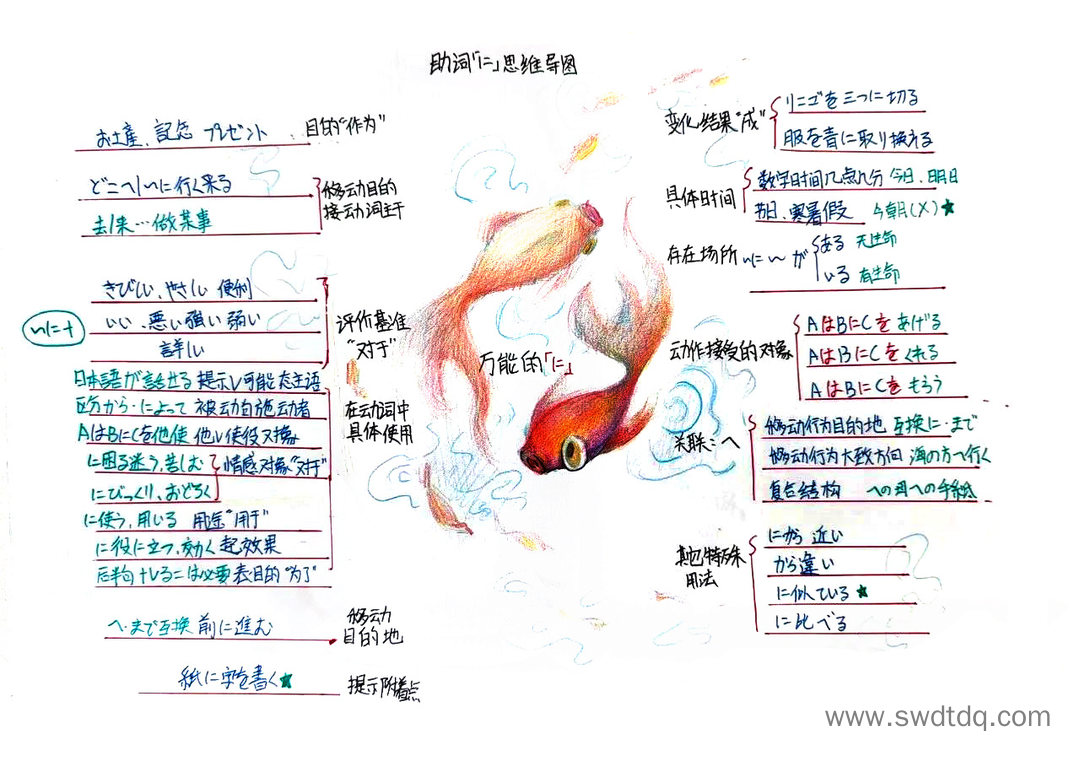 助词「に」思维导图
お土産、記念 プレゼント
目的"作为"
どこへ/〜に行く来る
去/来…做某事
移动目的
接动词主干
きびしい、やさしい 便利
いい、悪い 強い 弱い
詳しい
〜に+
评价基准
"对于"
日本語が話せる 提示ν可能态主语
区分から・によって 被动句施动者
AはBにCを他使 他ν使役对象
に困る迷う、苦しむ 情感对象"对于"
にびっくり、おどろく
に使う、用いる 用途"用于"
に役に立つ、効く 起效果
后半句 +νるには必要 表目的"为了"
在动词中
具体使用
へ・まで互换 前に進む
移动
目的地
紙に字を書く★
提示附着点
万能的「に」
变化结果"成"
リニゴを三つに切る
服を青に取り換える
具体时间
数字日时间几点几分 今日、明日
朔日、寒暑假 今朝(×)★
存在场所 〜に〜が
ある 无生命
いる 有生命
动作接受的对象
AはBにCをあげる
AはBにCをくれる
AはBにCをもらう
关联:へ
移动行为目的地 互换に・まで
移动行为大致方向 海の方へ行く
复合结构 への 母への手紙
其他特殊
用法
にから 近い
から違い
に似ている★
に比べる
www.swdtdq.com